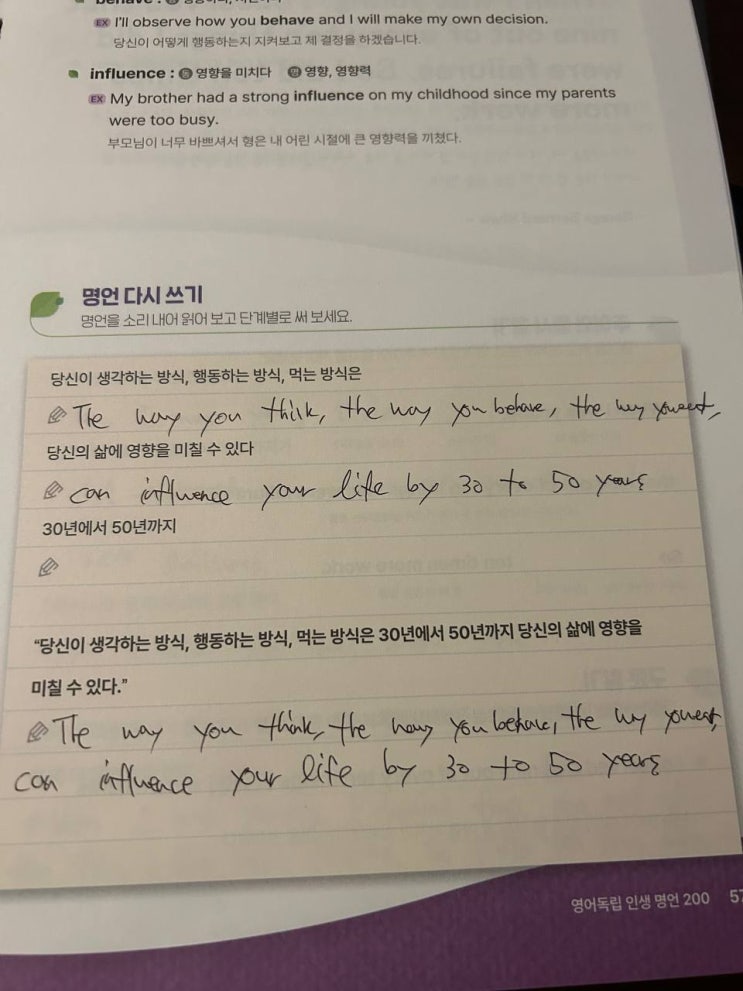 EX I'll observe how you behave and I will make my own decision.
당신이 어떻게 행동하는지 지켜보고 제 결정을 하겠습니다.
influence : 동 영향을 미치다 명 영향, 영향력
EX My brother had a strong influence on my childhood since my parents
were too busy.
부모님이 너무 바쁘셔서 형은 내 어린 시절에 큰 영향력을 끼쳤다.
명언 다시 쓰기
명언을 소리 내어 읽어 보고 단계별로 써 보세요.
당신이 생각하는 방식, 행동하는 방식, 먹는 방식은
The way you think, the way you behave, the way you eat,
당신의 삶에 영향을 미칠 수 있다
can influence your life by 30 to 50 years
30년에서 50년까지
“당신이 생각하는 방식, 행동하는 방식, 먹는 방식은 30년에서 50년까지 당신의 삶에 영향을
미칠 수 있다.”
The way you think, the way you behave, the way you eat,
can influence your life by 30 to 50 years
영어독립 인생 명언 200 57